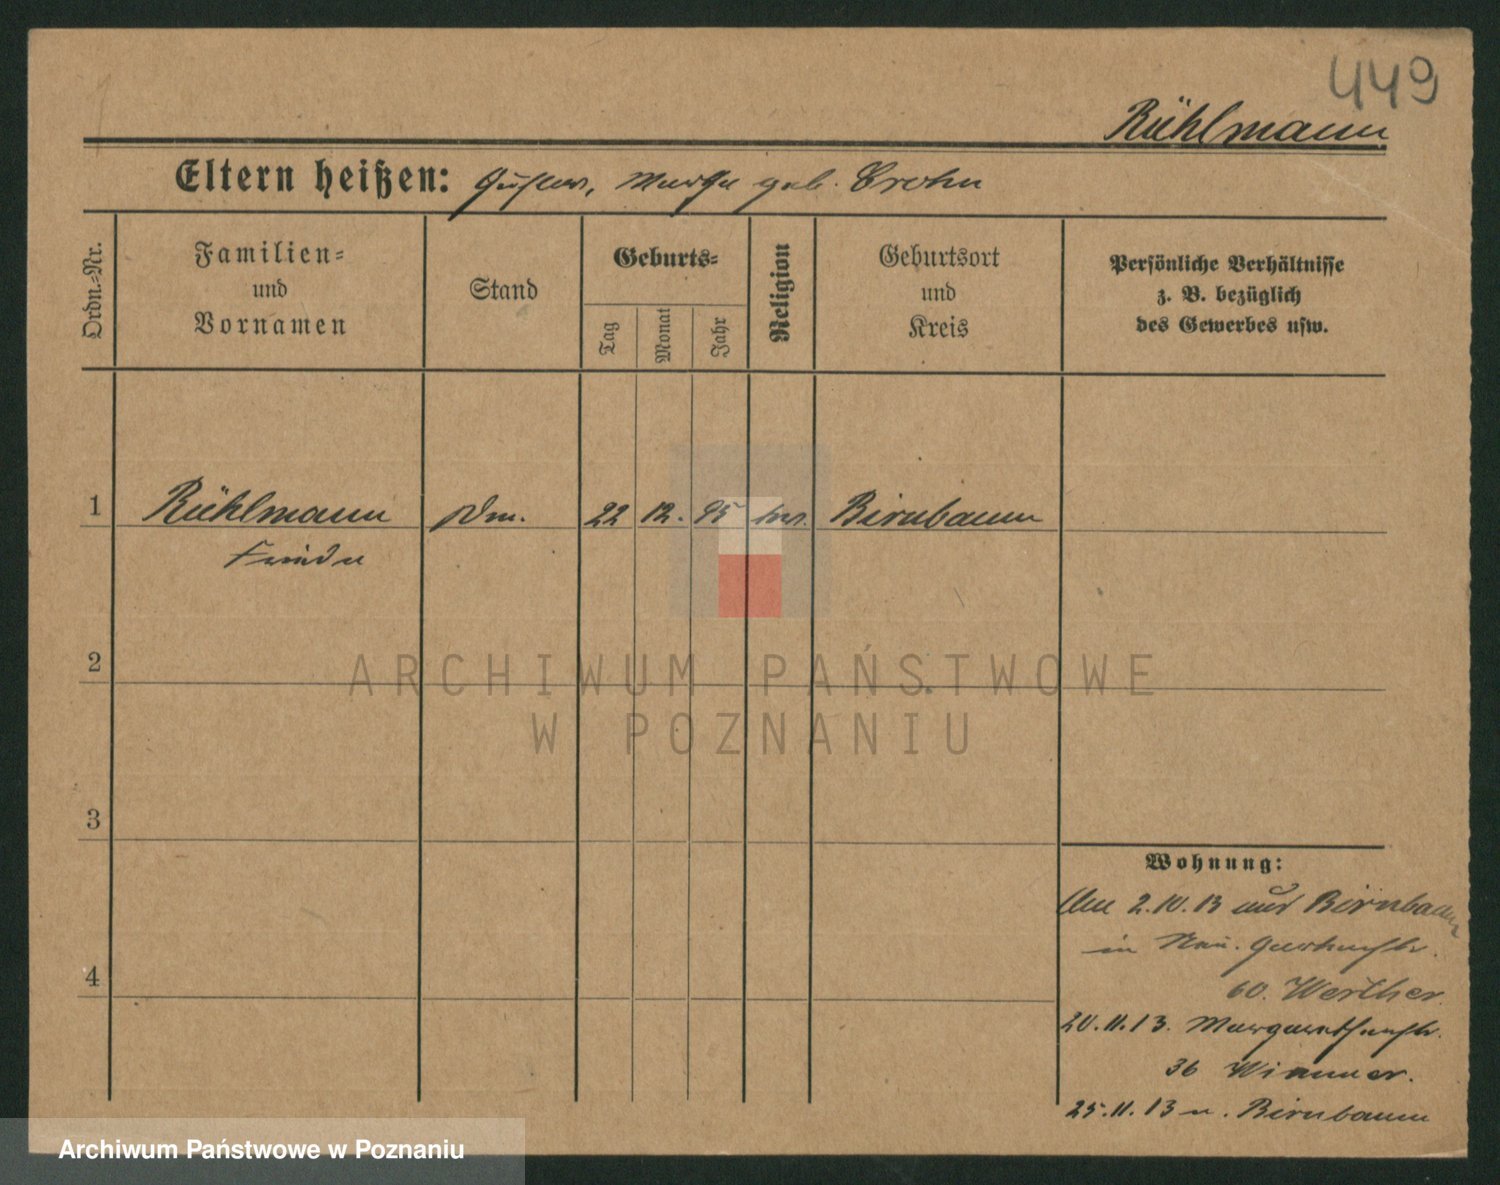 449
Rühlmann
Eltern heißen: Gustav, Martha geb. Crohn
Ordn.-Nr.
Familien-
und
Vornamen
Stand
Geburts-
Tag
Monat
Jahr
Religion
Geburtsort
und
Kreis
Persönliche Verhältnisse
z. B. bezüglich
des Gewerbes usw.
1 Rühlmann 22 12. 95 Birnbaum
Frieda
2
ARCHIWUM PAŃSTWOWE
W POZNANIU
3
4
Wohnung:
2.10.13 aus Birnbaum
in
60. Werther.
20.11.13. Margarethenstr.
36 Wimmer.
25.11.13 n. Birnbaum
Archiwum Państwowe w Poznaniu